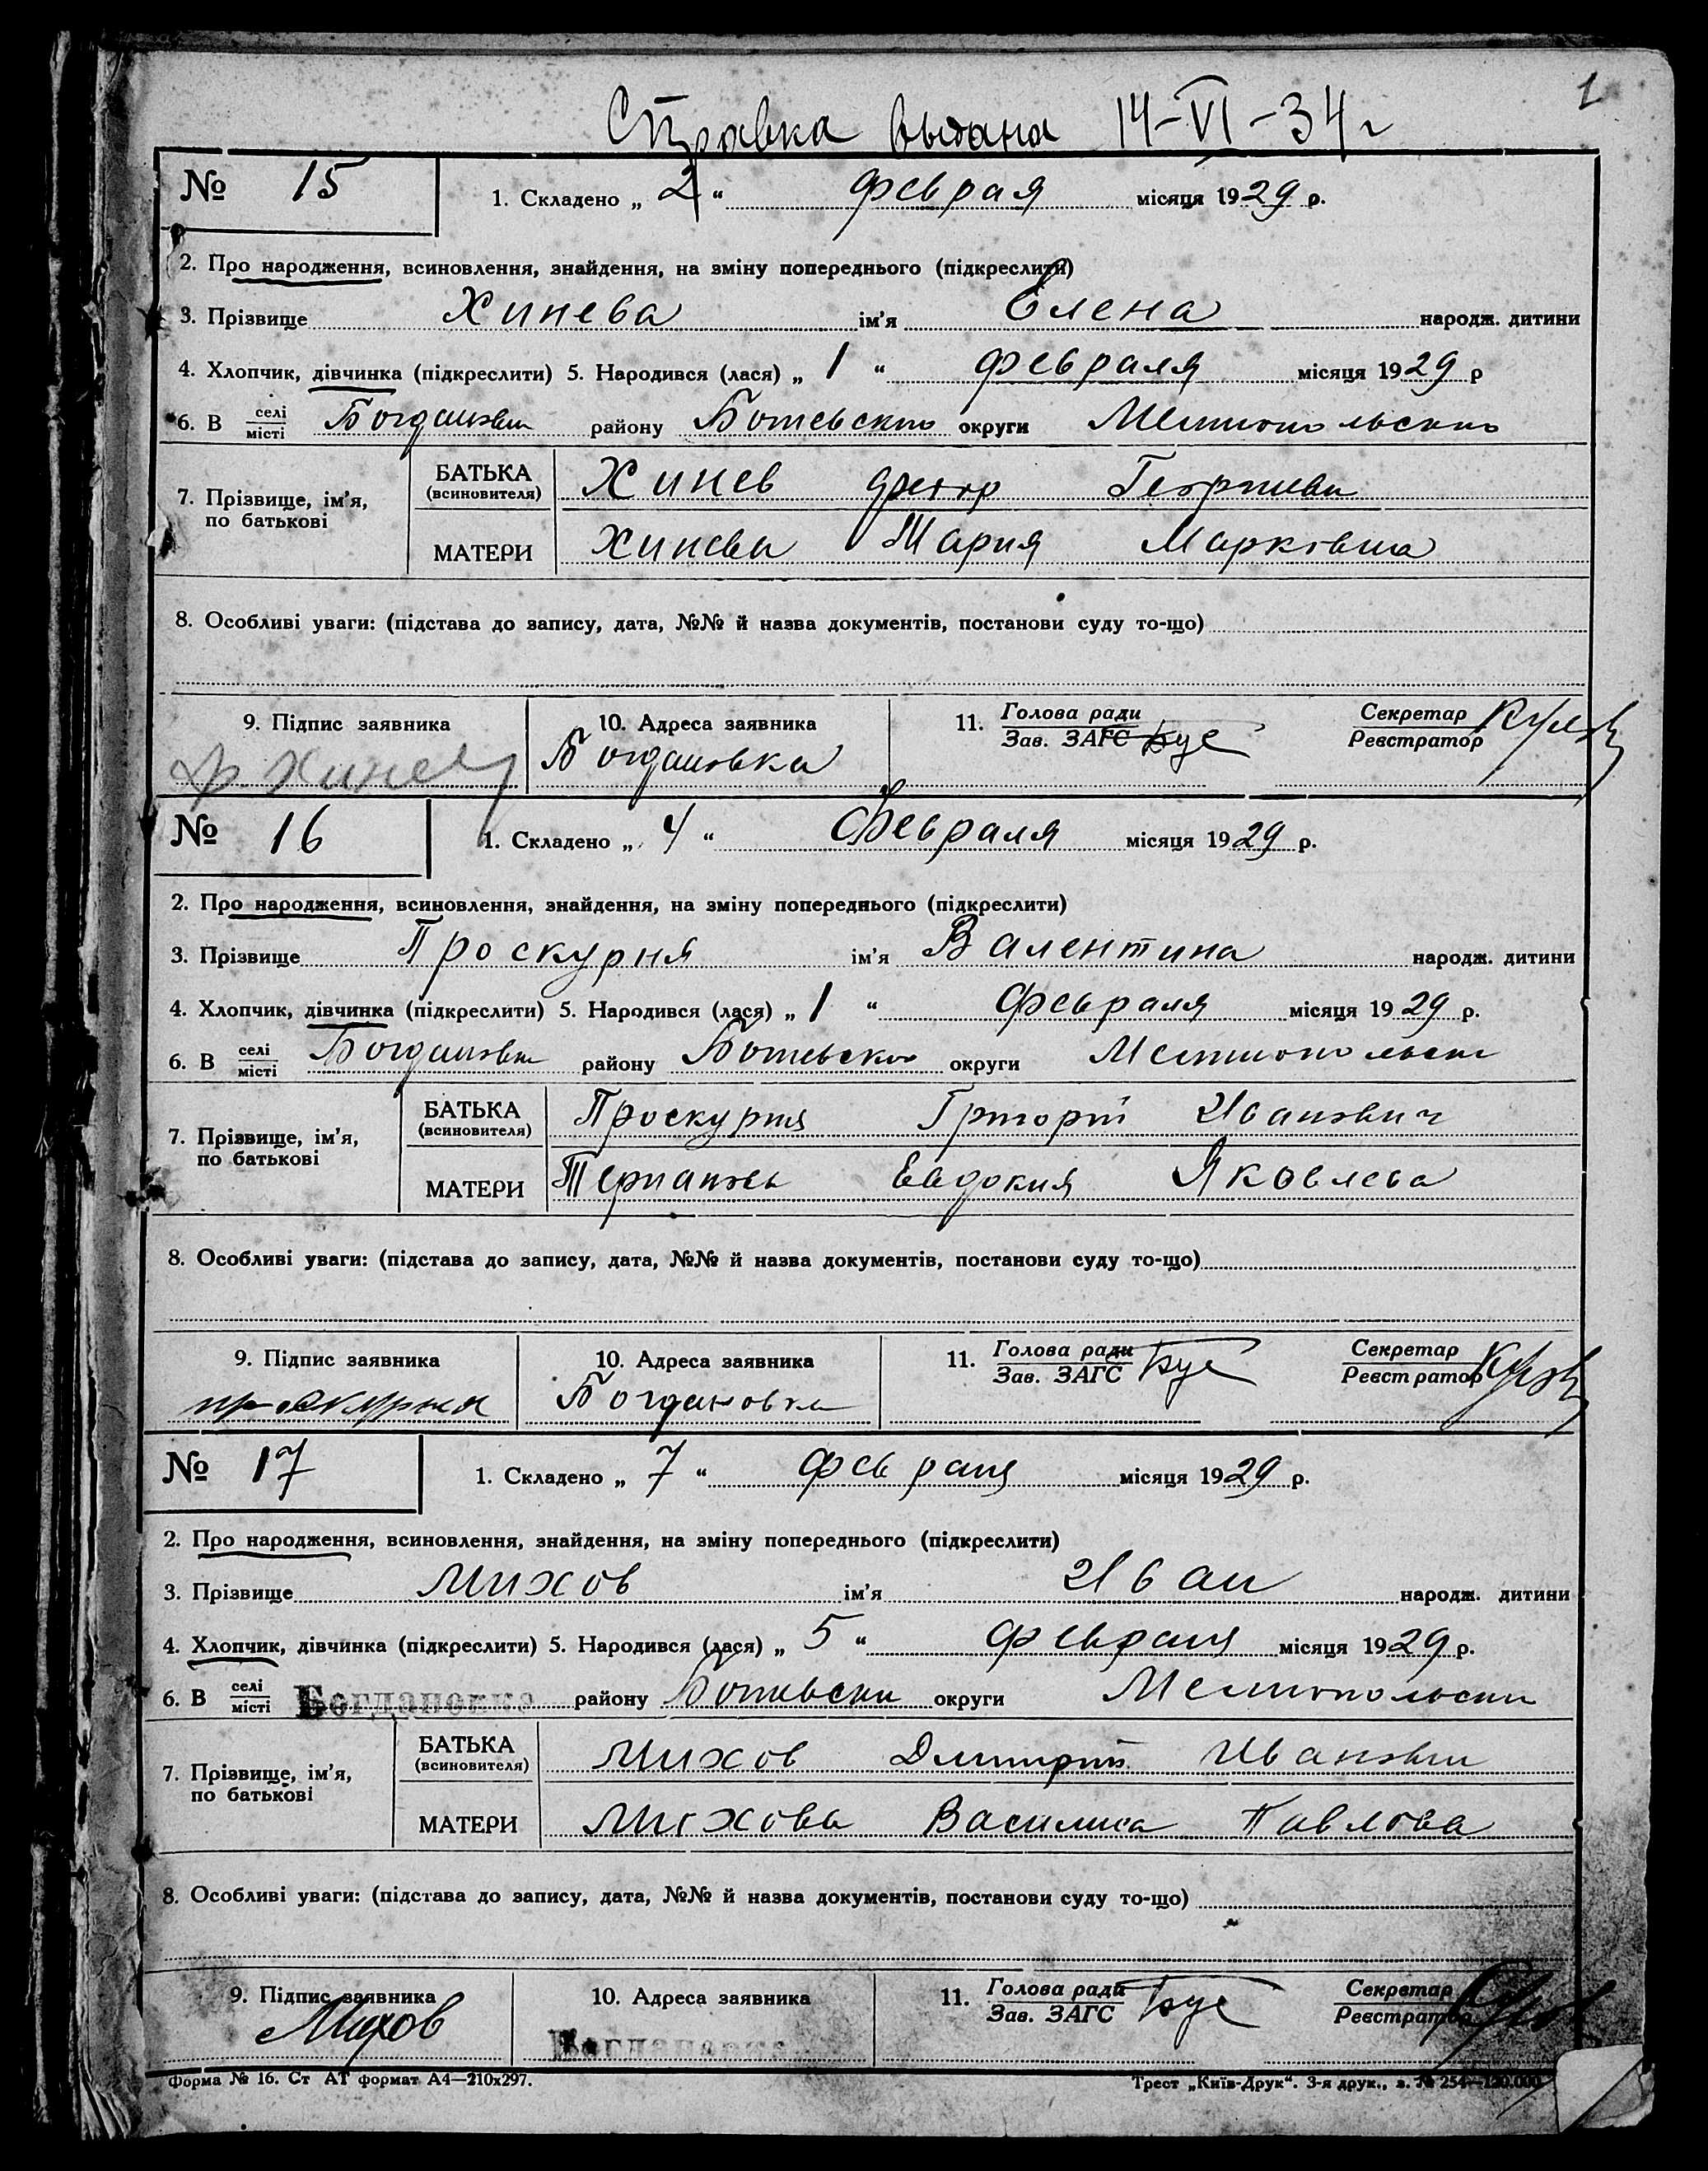 1
Справка выдана 14-VI-34 г
№ 15 1. Складено „ 2 “ феврая місяця 1929 р.
2. Про народження, всиновлення, знайдення, на зміну попереднього (підкреслити)
3. Прізвище Хинева ім'я Елена народж. дитини
4. Хлопчик, дівчинка (підкреслити) 5. Народився (лася) „ 1 “ февраля місяця 1929 р
6. В селі місті Богдановки району Ботевского округи Мелитопольского
7. Прізвище, ім'я, по батькові
БАТЬКА (всиновителя) Хинев Георгиеви
МАТЕРИ Хинева Мария Марковна
8. Особливі уваги: (підстава до запису, дата, №№ й назва документів, постанови суду то-що)
9. Підпис заявника 10. Адреса заявника 11. Голова ради Зав. ЗАГС Секретар Реєстратор
Ф. Хинев Богдановка Бус
№ 16 1. Складено „ 4 “ Февраля місяця 1929 р.
2. Про народження, всиновлення, знайдення, на зміну попереднього (підкреслити)
3. Прізвище Проскурня ім'я Валентина народж. дитини
4. Хлопчик, дівчинка (підкреслити) 5. Народився (лася) „ 1 “ Февраля місяця 1929 р.
6. В селі місті Богдановки району Ботевского округи Мелитопольск
7. Прізвище, ім'я, по батькові
БАТЬКА (всиновителя) Проскурня Григорий Иванович
МАТЕРИ Евдокия Яковлева
8. Особливі уваги: (підстава до запису, дата, №№ й назва документів, постанови суду то-що)
9. Підпис заявника 10. Адреса заявника 11. Голова ради Зав. ЗАГС Секретар Реєстратор
проскурня Богдановка Бус
№ 17 1. Складено „ 7 “ февраля місяця 1929 р.
2. Про народження, всиновлення, знайдення, на зміну попереднього (підкреслити)
3. Прізвище Михов ім'я Иван народж. дитини
4. Хлопчик, дівчинка (підкреслити) 5. Народився (лася) „ 5 “ февраля місяця 1929 р.
6. В селі місті Богдановка району Ботевски округи Мелитопольски
7. Прізвище, ім'я, по батькові
БАТЬКА (всиновителя) Михов Дмитрий Иванови
МАТЕРИ Михова Василиса Павлова
8. Особливі уваги: (підстава до запису, дата, №№ й назва документів, постанови суду то-що)
9. Підпис заявника 10. Адреса заявника 11. Голова ради Зав. ЗАГС Секретар Реєстратор
Михов Богдановка Бус
Форма № 16. Ст АТ формат А4—210х297. Трест „Київ-Друк“. 3-я друк., з. № 254—120.000